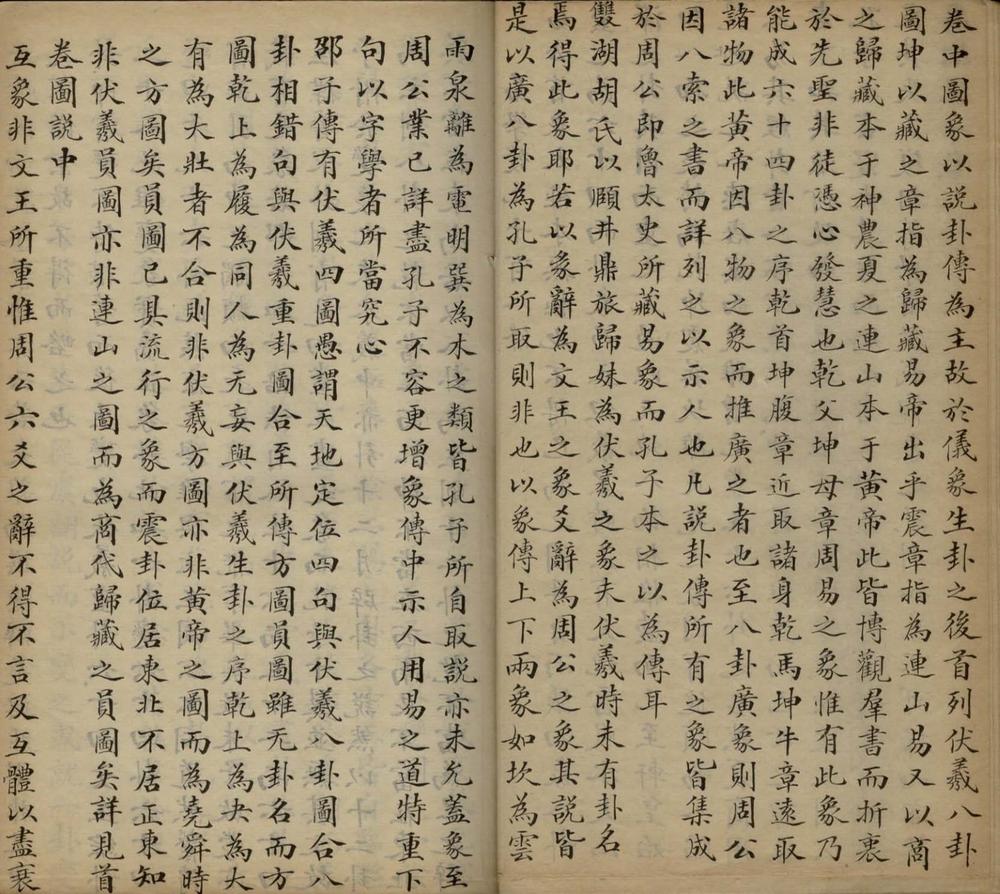 卷中圖象以説卦傳為主故於儀象生卦之後首列伏羲八卦
圖坤以藏之章指為歸藏易帝出乎震章指為連山易又以商
之歸藏本于神農夏之連山本于黄帝此皆博觀羣書而折衷
於先聖非徒憑心發慧也乾父坤母章周易之象惟有此象乃
能成六十四卦之序乾首坤腹章近取諸身乾馬坤牛章遠取
諸物此黄帝因八物之象而推廣之者也至八卦廣象則周公
因八索之書而詳列之以示人也凡説卦傳所有之象皆集成
於周公即魯太史所藏易象而孔子本之以為傳耳
雙湖胡氏以頤井鼎旅歸妹為伏羲之象夫伏羲時未有卦名
焉得此象耶若以彖辭為文王之象爻辭為周公之象其説皆
是以廣八卦為孔子所取則非也以彖傳上下兩象如坎為雲
雨泉離為電明巽為木之類皆孔子所自取説亦未允蓋象至
周公業已詳盡孔子不容更增象傳中示人用易之道特重下
句以字學者所當究心
邵子傳有伏羲四圖愚謂天地定位四句與伏羲八卦圖合八
卦相錯句與伏羲重卦圖合至所傳方圖員圖雖无卦名而方
圖乾上為履為同人為无妄與伏羲生卦之序乾上為夬為大
有為大壯者不合則非伏羲方圖亦非黄帝之圖而為堯舜時
之方圖矣員圖已具流行之象而震卦位居東北不居正東知
非伏羲員圖亦非連山之圖而為商代歸藏之員圖矣詳見首
卷圖説中
互象非文王所重惟周公六爻之辭不得不言及互體以盡衰